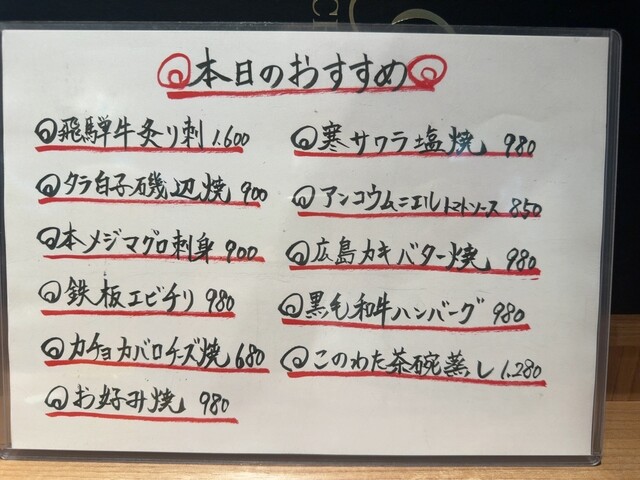 本日のおすすめ
飛騨牛炙り刺 1.600
タラ白子磯辺焼 900
本メジマグロ刺身 900
鉄板エビチリ 980
カチョカバロチーズ焼 680
お好み焼 980
寒サワラ塩焼 980
アンコウムニエルトマトソース 850
広島カキバター焼 980
黒毛和牛ハンバーグ 980
このわた茶碗蒸し 1.280